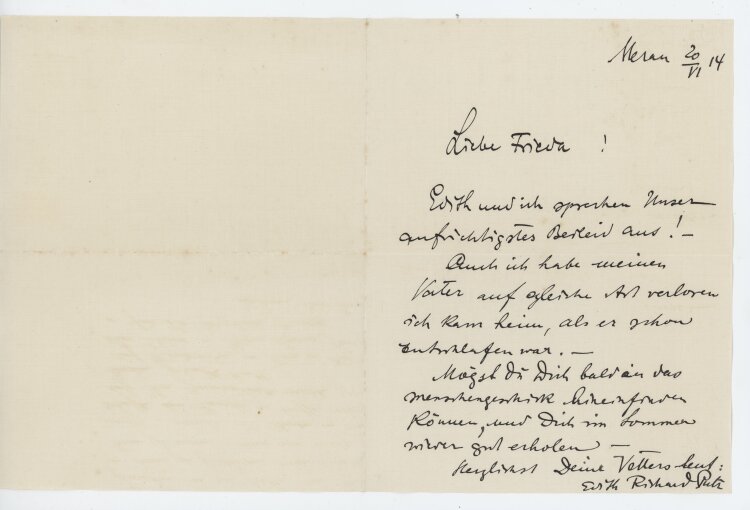 Meran 20/VI 14
Liebe Frieda !
Edith und ich sprechen Unser
aufrichtigstes Beileid aus ! –
Auch ich habe meinen
Vater auf gleiche Art verloren
ich kam heim, als er schon
entschlafen war. –
Mögst Du Dich bald in das
menschengeschick hineinfinden
können, und Dich im Sommer
wieder gut erholen –
Herzlichst Deine Vettersleut :
Edith Richard